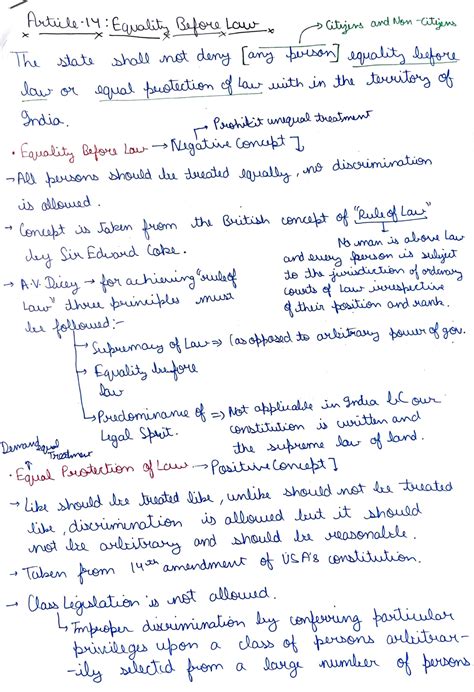 Article-14: Equality Before Law
→ Citizens and Non-Citizens
The state shall not deny [any person] equality before
law or equal protection of law with in the territory of
India.
→ Prohibit unequal treatment
• Equality Before Law → Negative Concept]
→ All persons should be treated equally, no discrimination
is allowed.
→ Concept is taken from the British concept of "Rule of Law"
by Sir Edward Coke.
↓ No man is above law
and every person is subject
to the jurisdiction of ordenary
courts of Law irrespective
of their position and rank.
→ A.V. Dicey → for achieving "rule of
Law" three principles must
be followed:-
→ Supremacy of Law ⇒ (as opposed to arbitrary power of gov.
→ Equality before
law
→ Predominance of
Legal Sprit.
⇒ Not applicable in India b/c our
constitution is written and
the supreme law of land.
Demand equal
Treatment
• Equal Protection of Law → Positive Concept]
→ Like should be treated like, unlike should not be treated
like, discrimination is allowed but it should
not be arbitrary and should be reasonable.
→ Taken from 14th amendment of USA's constitution.
→ Class Legislation is not allowed.
↳ Improper discrimination by conferring particular
privileges upon a class of persons arbitrar-
-ily selected from a large number of persons